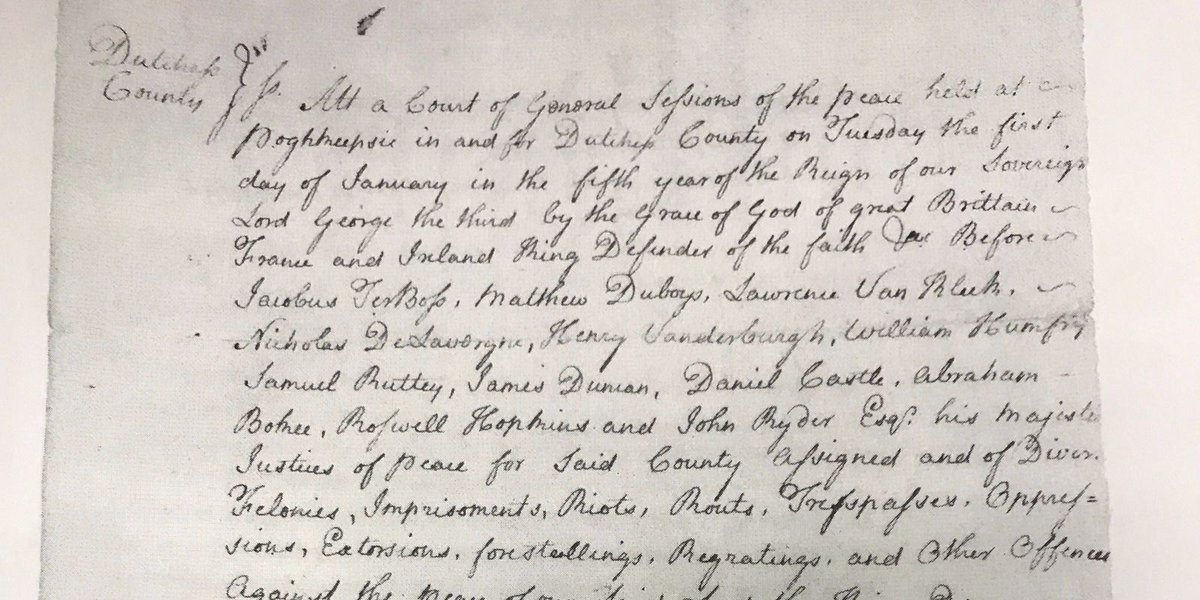 Dutchess
County
ss. Att a Court of General Sessions of the peace held at
Poghkeepsie in and for Dutchess County on Tuesday the first
day of January in the fifth year of the Reign of our Sovereign
Lord George the third by the Grace of God of great Brittain
France and Ireland King Defender of the faith &c Before
Jacobus TerBoss, Matthew Duboys, Lawrence Van Kleek,
Nicholas DeLavergne, Henry Vanderburgh, William Humfry
Samuel Ruttey, James Duncan, Daniel Castle, Abraham
Botree, Roswell Hopkins and John Ryder Esqr. his Majestes
Justices of peace for Said County assigned and of Divers
Felonies, Imprisoments, Riots, Routs, Tresspasses, Oppres=
sions, Extorsions, forestallings, Regratings, and Other Offences
Against the peace of our